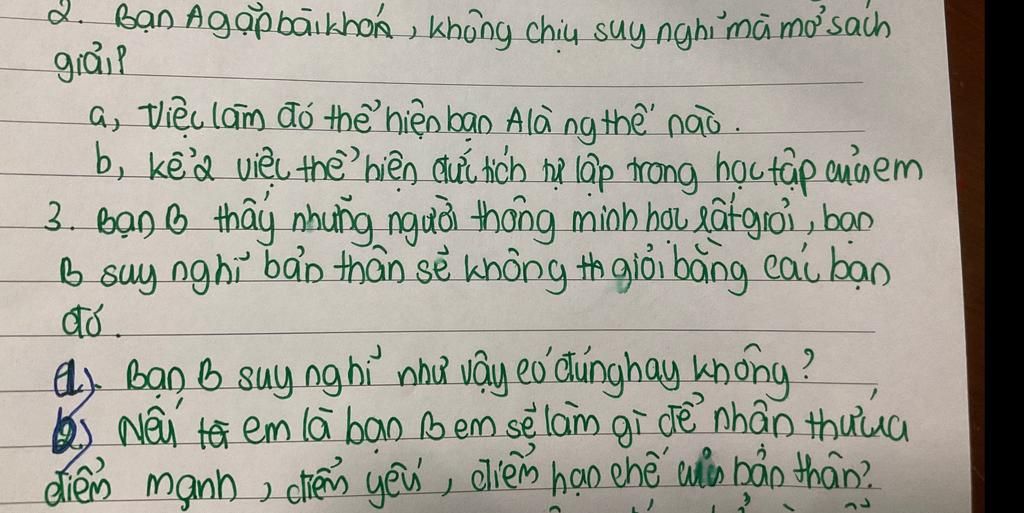 2. Bạn A gặp bài khoá, không chịu suy nghĩ mà mở sách
giải?
a, Việc làm đó thể hiện bạn A là ng thế nào.
b, kể 2 việc thể hiện đức tích tự lập trong học tập của em
3. Bạn B thấy những người thông minh học rất giỏi, bạn
B suy nghĩ bản thân sẽ không th giỏi bằng các bạn
đó.
a). Bạn B suy nghĩ như vậy có đúng hay không?
b) Nếu em là bạn B em sẽ làm gì để nhân thức
điểm mạnh, điểm yếu, điểm hạn chế của bản thân?